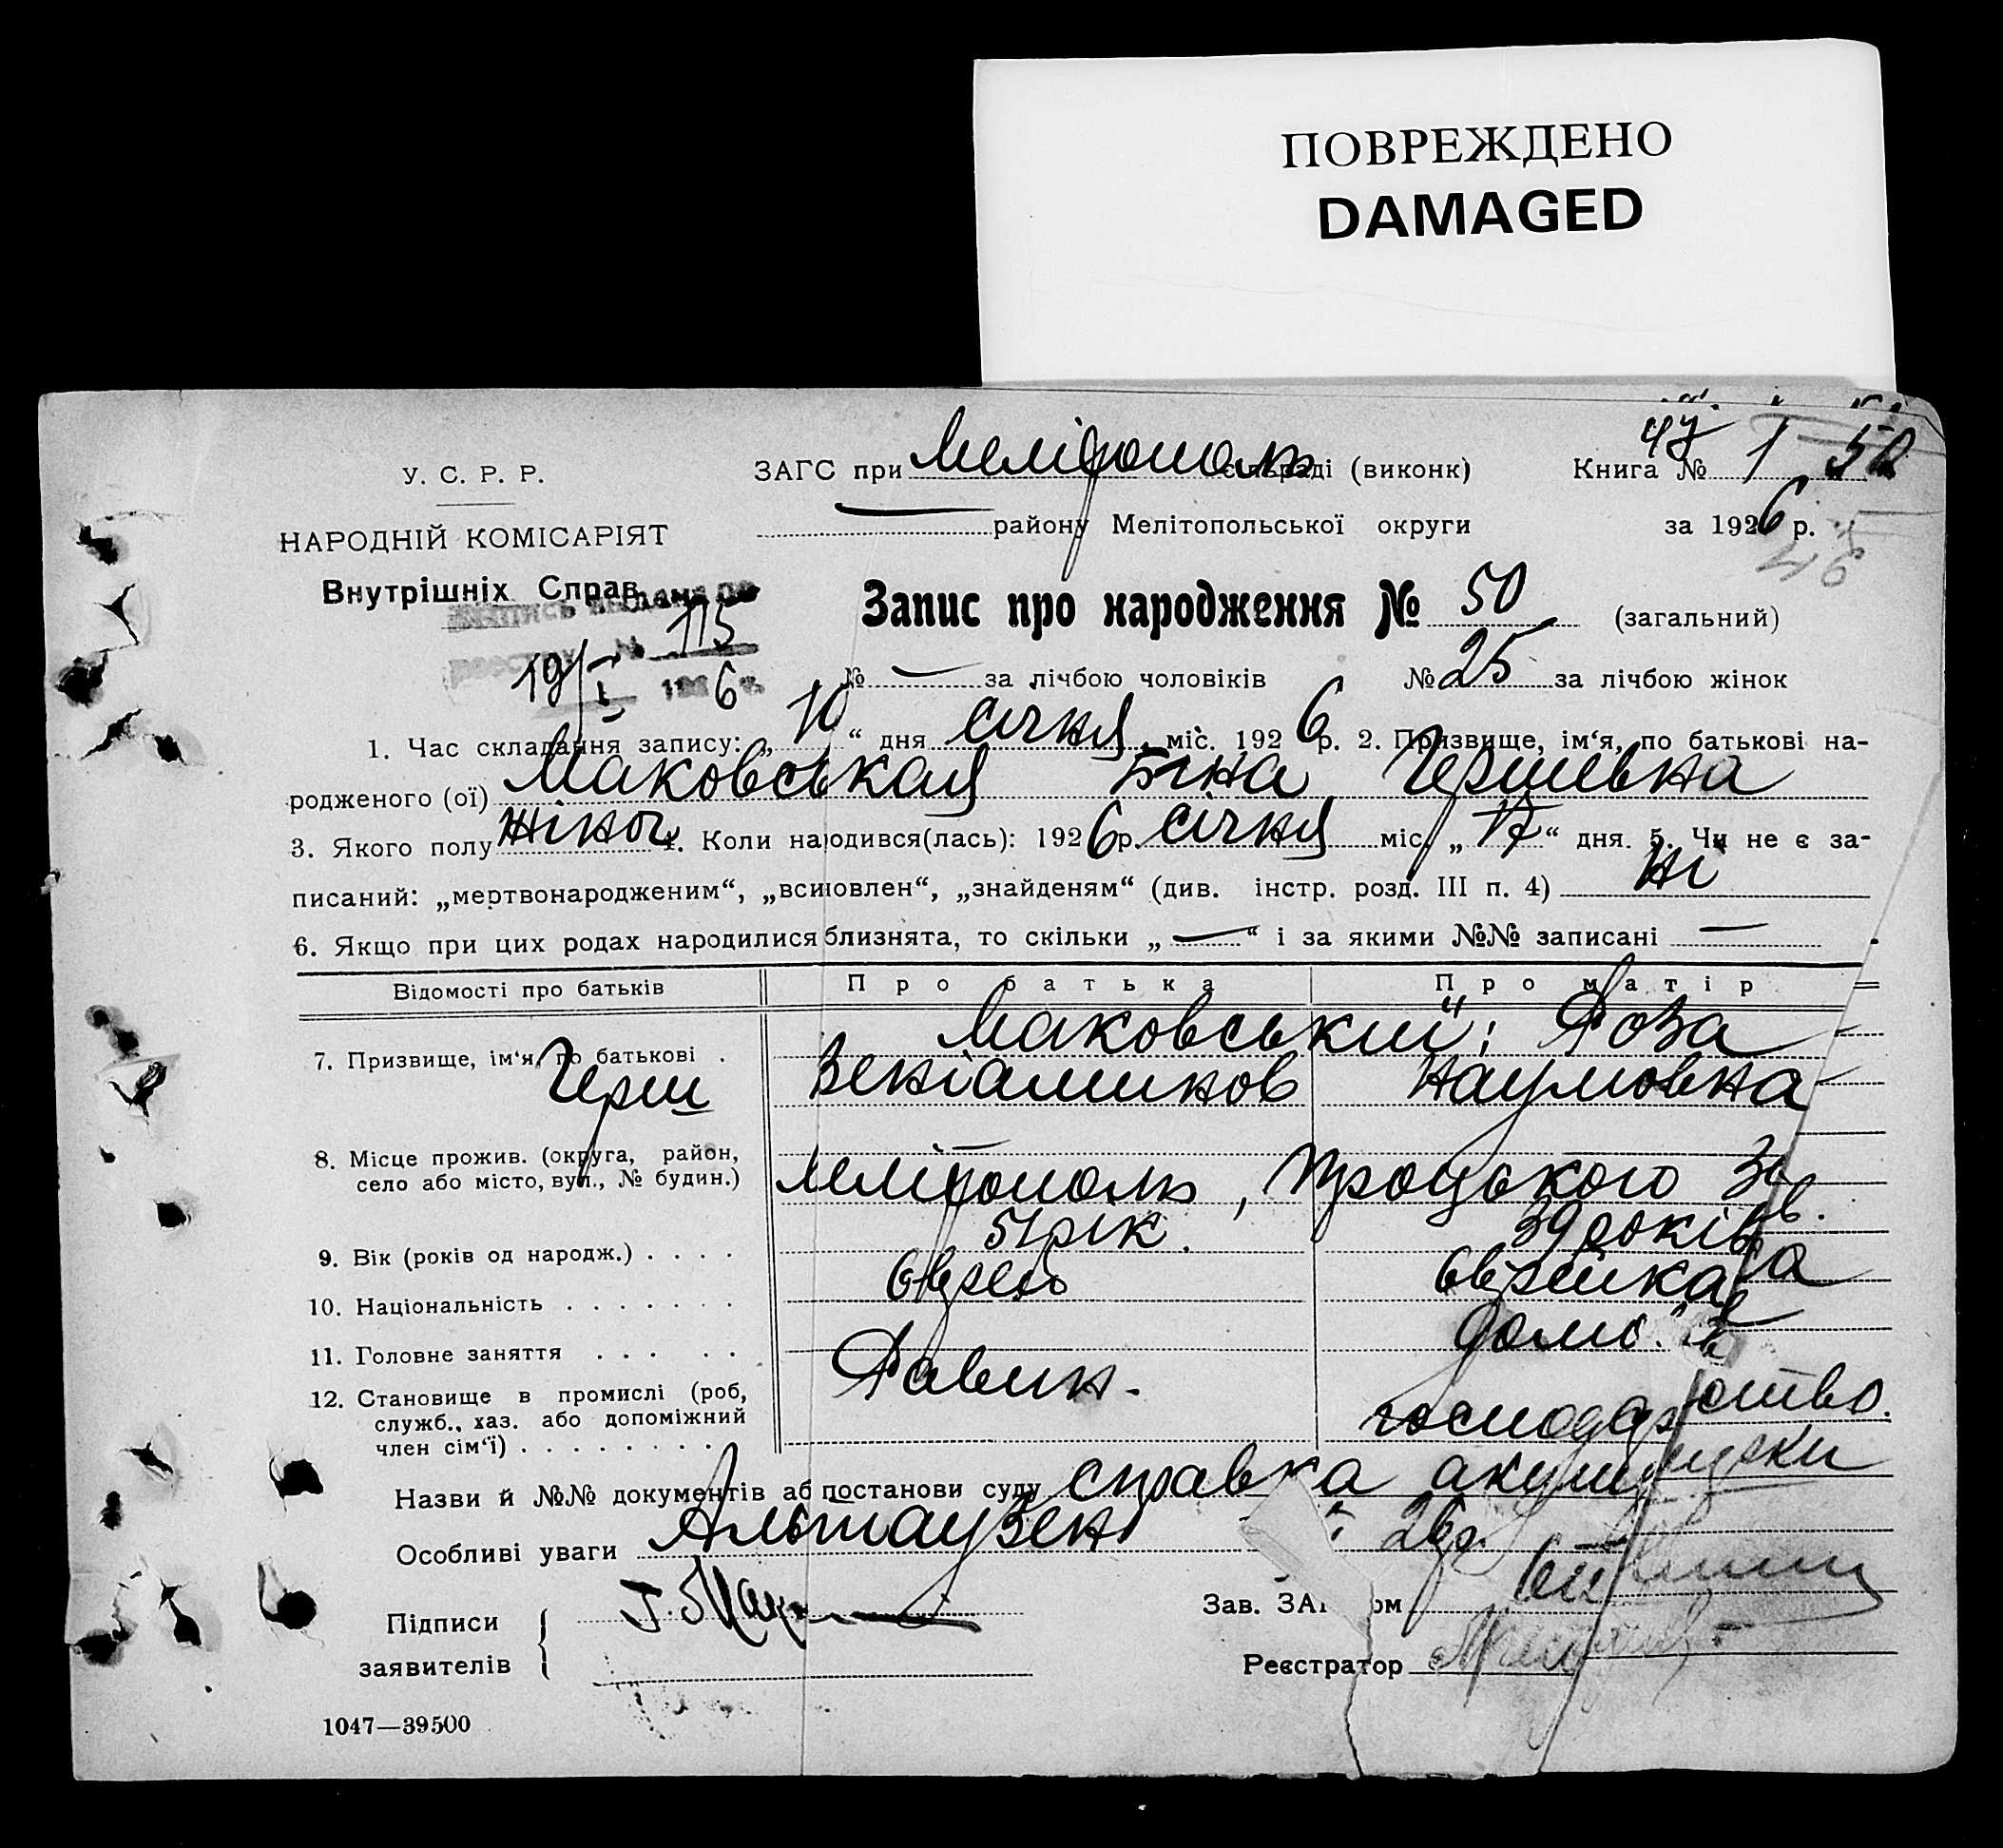 ПОВРЕЖДЕНО
DAMAGED
У. С. Р. Р.
НАРОДНІЙ КОМІСАРІЯТ
Внутрішніх Справ
115
19/I 1926
ЗАГС при Мелітополь сільраді (виконк)
Книга № 1 50
47
району Мелітопольської округи
за 1926 р.
Запис про народження № 50 (загальний)
№ — за лічбою чоловіків № 25 за лічбою жінок
1. Час складання запису: „ “ дня січня міс. 1926 р. 2. Призвище, ім‘я, по батькові на-
родженого (ої) Маковськая Гершевна
3. Якого полу жіноч 4. Коли народився(лась): 1926 р. січня міс. „ “ дня. 5. Чи не є за-
писаний: „мертвонародженим“, „всиновлен“, „знайденям“ (див. інстр. розд. III п. 4) ні
6. Якщо при цих родах народилися близнята, то скільки „—“ і за якими №№ записані —
Відомості про батьків Про батька Про матір
7. Призвище, ім‘я по батькові . Маковський; Роза
Герш Веніаминов Наумовна
8. Місце прожив. (округа, район,
село або місто, вул., № будин.) Мелітополь, Троцького
9. Вік (років од народж.) . . . . 51 рік. 39 років
10. Національність . . . . . . . єврей єврейка
11. Головне заняття . . . . . Равин. дом.
12. Становище в промислі (роб,
служб., хаз. або допоміжний
член сім‘ї) . . . . . . . . господарство.
Назви й №№ документів аб постанови суду справка акушерки
Особливі уваги Альтаузен 26 р.
Підписи
заявителів
Зав. ЗАГСом
Реєстратор
1047—39500